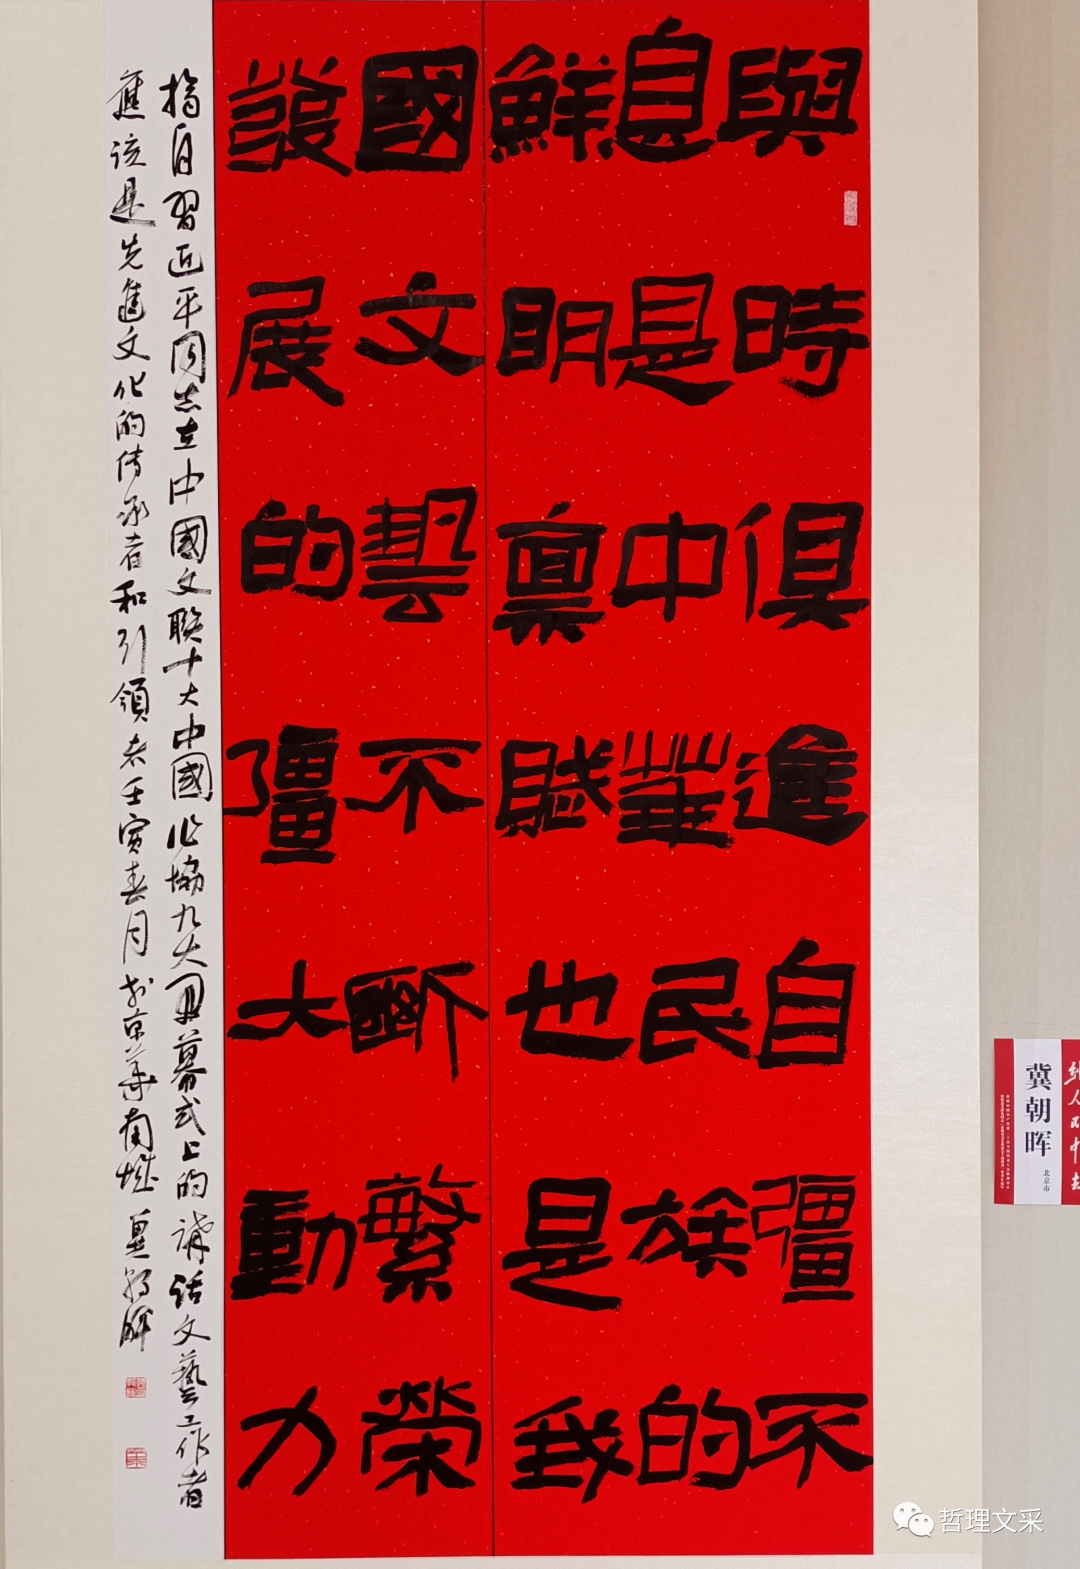 與時俱進自彊不
息是中華民族的
鮮明稟賦也是我
國文藝不斷繁榮
發展的彊大動力
摘自習近平同志在中國文聯十大中國作協九大開幕式上的講話文藝工作者
應該是先進文化的传承者和引領者壬寅春月於京華南城冀朝晖
到人民中去
冀朝晖
北京市
哲理文采